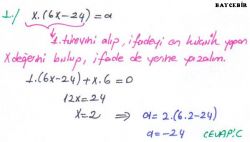 BAYCEBİR
1./ x.(6x-24)=a
1. türevini alıp, ifadeyi en küçük yapan
x değerini bulup, ifade de yerine yazalım.
1.(6x-24)+x.6=0
12x=24
x=2 ⟹ a=2.(6.2-24)
a=-24 CEVAP:C